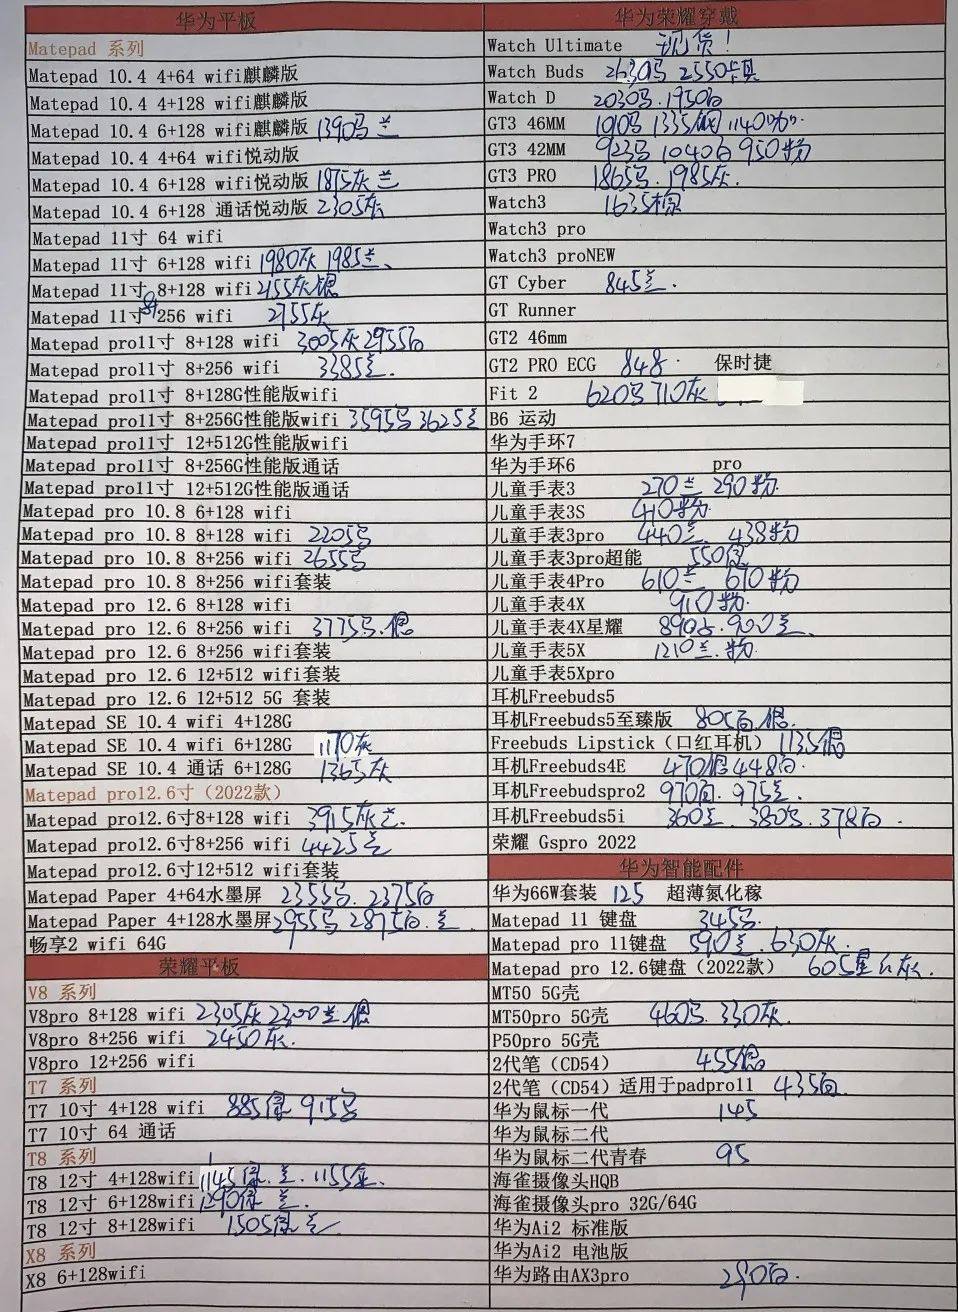 华为平板
Matepad 系列
Matepad 10.4 4+64 wifi麒麟版
Matepad 10.4 4+128 wifi麒麟版
Matepad 10.4 6+128 wifi麒麟版 1390 兰
Matepad 10.4 4+64 wifi悦动版
Matepad 10.4 6+128 wifi悦动版 1875灰 兰
Matepad 10.4 6+128 通话悦动版 2305灰
Matepad 11寸 64 wifi
Matepad 11寸 6+128 wifi 1980灰 1985兰
Matepad 11寸 8+128 wifi 灰银
Matepad 11寸 8+256 wifi 2755灰
Matepad pro11寸 8+128 wifi 3005灰 2955白
Matepad pro11寸 8+256 wifi 3385兰
Matepad pro11寸 8+128G性能版wifi
Matepad pro11寸 8+256G性能版wifi 3595 3625兰
Matepad pro11寸 12+512G性能版wifi
Matepad pro11寸 8+256G性能版通话
Matepad pro11寸 12+512G性能版通话
Matepad pro 10.8 6+128 wifi
Matepad pro 10.8 8+128 wifi 2205
Matepad pro 10.8 8+256 wifi 2655
Matepad pro 10.8 8+256 wifi套装
Matepad pro 12.6 8+128 wifi
Matepad pro 12.6 8+256 wifi 3775
Matepad pro 12.6 8+256 wifi套装
Matepad pro 12.6 12+512 wifi套装
Matepad pro 12.6 12+512 5G 套装
Matepad SE 10.4 wifi 4+128G
Matepad SE 10.4 wifi 6+128G 1170灰
Matepad SE 10.4 通话 6+128G 1365灰
Matepad pro12.6寸（2022款）
Matepad pro12.6寸8+128 wifi 3915灰兰
Matepad pro12.6寸8+256 wifi 4425兰
Matepad pro12.6寸12+512 wifi套装
Matepad Paper 4+64水墨屏 2355 2375白
Matepad Paper 4+128水墨屏 2955 2875白.兰
畅享2 wifi 64G
荣耀平板
V8 系列
V8pro 8+128 wifi 2305灰 2300兰
V8pro 8+256 wifi 2450灰.
V8pro 12+256 wifi
T7 系列
T7 10寸 4+128 wifi 885 915
T7 10寸 64 通话
T8 系列
T8 12寸 4+128wifi 1145 兰. 1155
T8 12寸 6+128wifi 1290 兰.
T8 12寸 8+128wifi 1505 兰
X8 系列
X8 6+128wifi
华为荣耀穿戴
Watch Ultimate 现货！
Watch Buds 2630 2550
Watch D 2030 1950白
GT3 46MM 1335 1140
GT3 42MM 923 1040白 950粉
GT3 PRO 1865 1985灰.
Watch3 1635棕
Watch3 pro
Watch3 proNEW
GT Cyber 845兰.
GT Runner
GT2 46mm
GT2 PRO ECG 848. 保时捷
Fit 2 620 710灰
B6 运动
华为手环7
华为手环6 pro
儿童手表3 270兰 290粉
儿童手表3S 410粉
儿童手表3pro 440兰. 438粉
儿童手表3pro超能 550
儿童手表4Pro 610兰 610粉
儿童手表4X 910粉.
儿童手表4X星耀 890 900兰
儿童手表5X 1210兰.粉
儿童手表5Xpro
耳机Freebuds5
耳机Freebuds5至臻版 805白
Freebuds Lipstick（口红耳机） 1135
耳机Freebuds4E 470 448白.
耳机Freebudspro2 970白. 975兰.
耳机Freebuds5i 360兰. 380 378白.
荣耀 Gspro 2022
华为智能配件
华为66W套装 125 超薄氮化稼
Matepad 11 键盘 345
Matepad pro 11键盘 590兰. 630灰.
Matepad pro 12.6键盘（2022款） 605 灰.
MT50 5G壳
MT50pro 5G壳 460 330灰.
P50pro 5G壳
2代笔（CD54） 455
2代笔（CD54）适用于padpro11 435白.
华为鼠标一代 145
华为鼠标二代
华为鼠标二代青春 95
海雀摄像头HQB
海雀摄像头pro 32G/64G
华为Ai2 标准版
华为Ai2 电池版
华为路由AX3pro 290白.